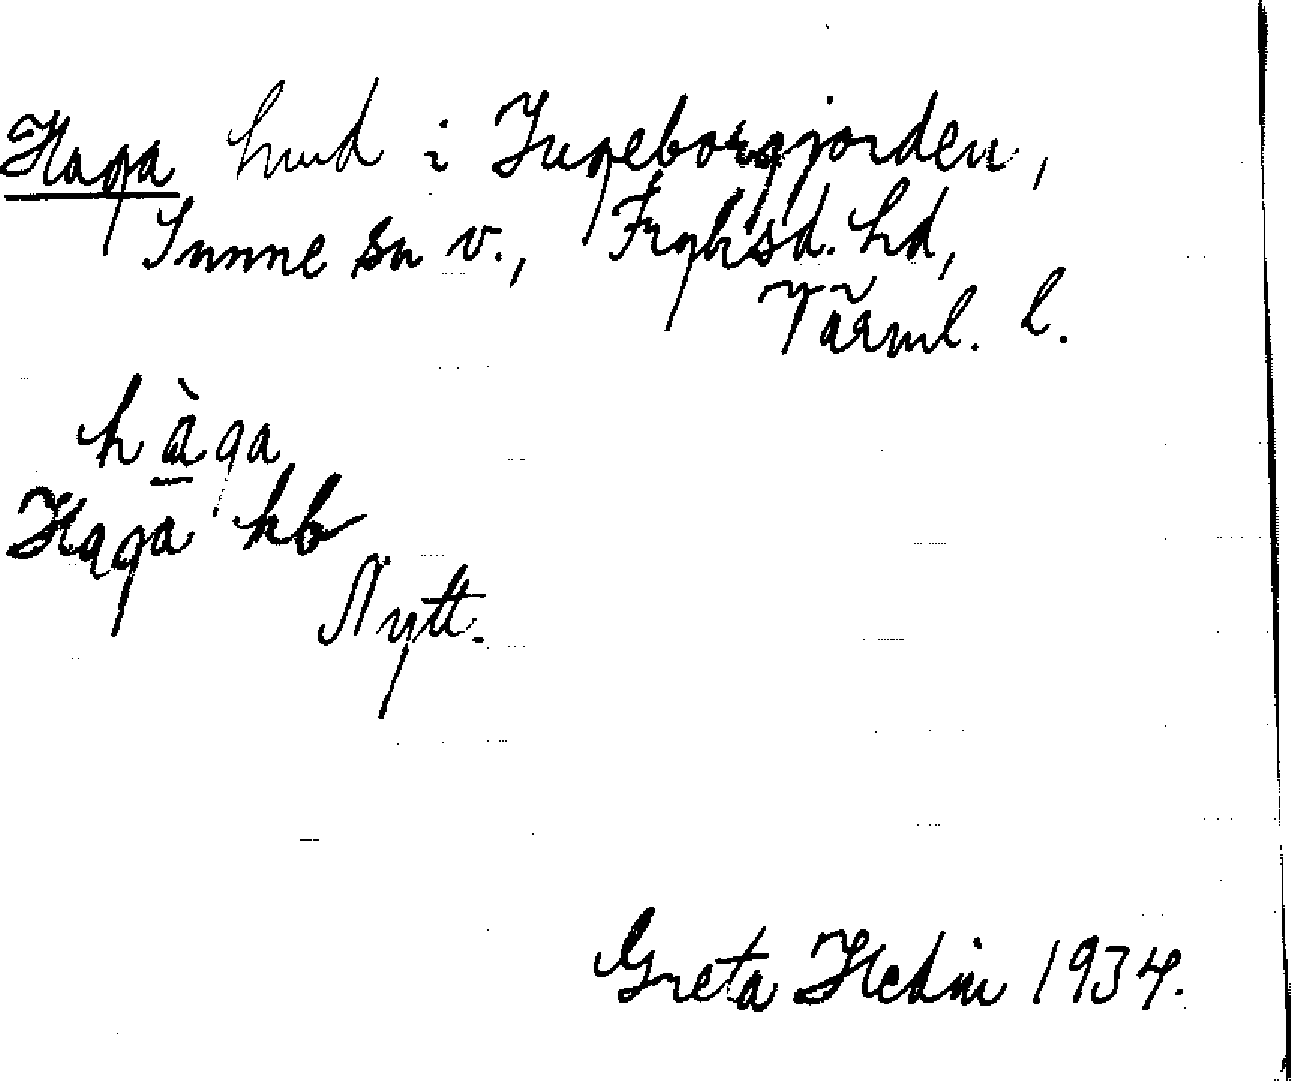 Haga hmd i Ingeborgjorden,
Sunne sn v., Fryksd. hd,
Värml. l.
hàga
Haga hb
Nytt.
Greta Hedin 1934.